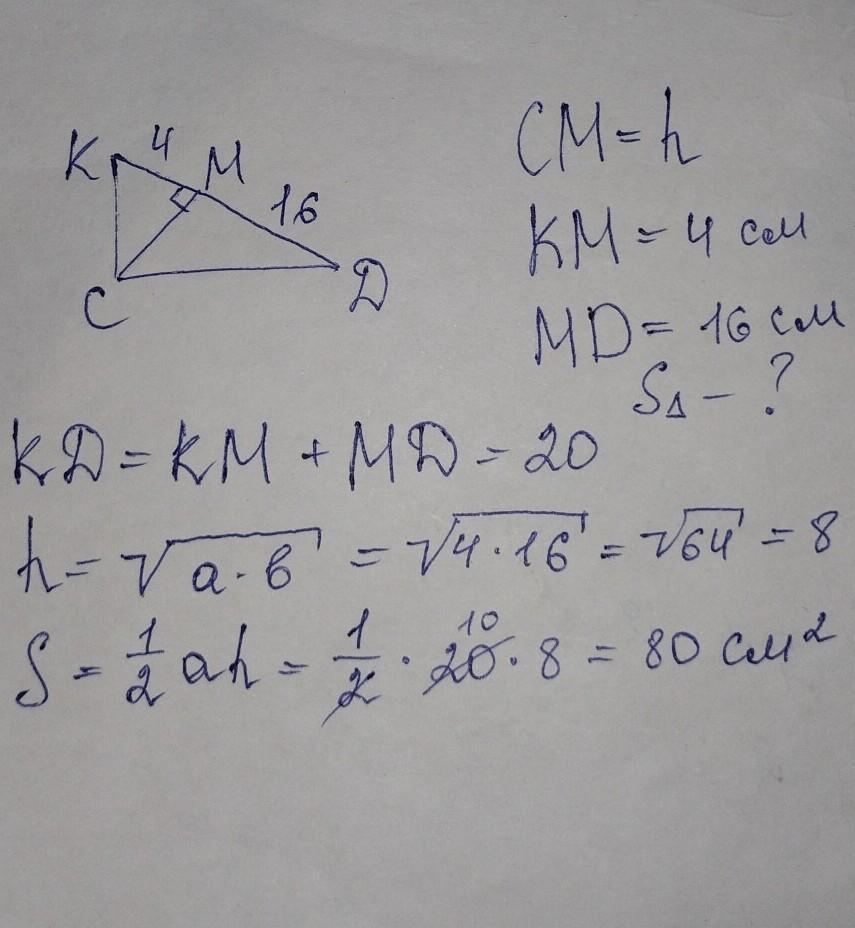 K 4 M
16
C D
CM = h
KM = 4 см
MD = 16 см
S∆ - ?
KD = KM + MD = 20
h = √a·b = √4·16 = √64 = 8
S = 1/2 ah = 1/2 · 20 · 8 = 80 см²
10